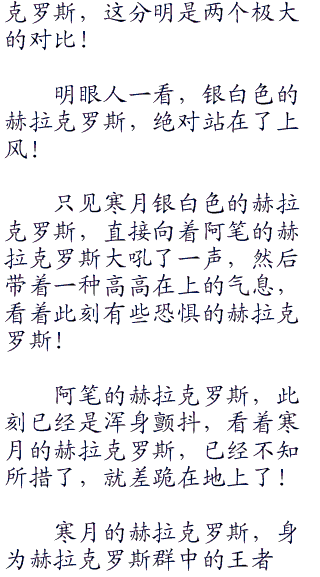 克罗斯，这分明是两个极大
的对比！
明眼人一看，银白色的
赫拉克罗斯，绝对站在了上
风！
只见寒月银白色的赫拉
克罗斯，直接向着阿笔的赫
拉克罗斯大吼了一声，然后
带着一种高高在上的气息，
看着此刻有些恐惧的赫拉克
罗斯！
阿笔的赫拉克罗斯，此
刻已经是浑身颤抖，看着寒
月的赫拉克罗斯，已经不知
所措了，就差跪在地上了！
寒月的赫拉克罗斯，身
为赫拉克罗斯群中的王者